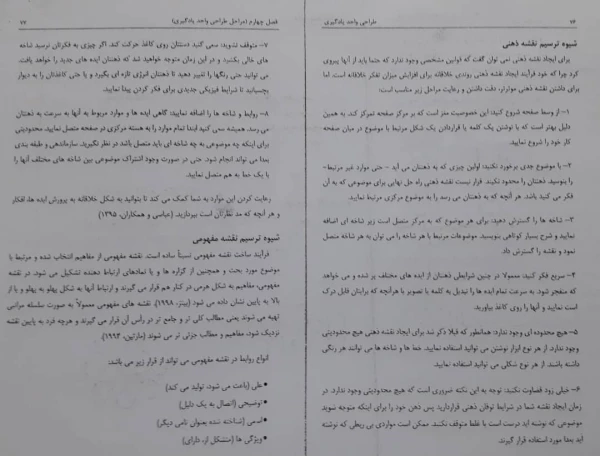 ۷۶
طراحی واحد یادگیری
شیوه ترسیم نقشه ذهنی
برای ایجاد نقشه ذهنی نمی توان گفت که قوانین مشخصی وجود ندارد که حتما باید از آنها پیروی
کرد چرا که خود فرآیند ایجاد نقشه ذهنی روندی خلاقانه برای افزایش میزان تفکر خلاقانه است. اما
برای داشتن نقشه ذهنی موثرتر، دقت داشتن و رعایت مراحل زیر مناسب است:
۱- از وسط صفحه شروع کنید: این خصوصیت مغز است که بر مرکز صفحه تمرکز کند. به همین
دلیل بهتر است که با نوشتن یک کلمه یا قراردادن یک شکل مرتبط با موضوع در میان صفحه
کار خود را شروع نمایید.
۲- با موضوع جدی برخورد نکنید: اولین چیزی که به ذهنتان می آید – حتی موارد غیر مرتبط-
را بنویسید. ذهنتان را محدود نکنید. قرار نیست نقشه ذهنی راه حل نهایی برای موضوعی که به آن
فکر می کنید باشد. هر آنچه که به ذهنتان می رسد را به موضوع مرکزی مرتبط نمایید.
۳- شاخه ها را گسترش دهید: برای هر موضوعی که به مرکز متصل است زیر شاخه ای اضافه
نمایید و شرح بسیار کوتاهی بنویسید. موضوعات مرتبط با هر شاخه را می توان به هر شاخه متصل
نمود و نقشه را گسترش داد.
۴- سریع فکر کنید: معمولا در چنین شرایطی ذهنتان از ایده های مختلف پر شده و می خواهد
که منفجر شود. به سرعت تمام ایده ها را تبدیل به کلمه یا تصویر یا هرآنچه که برایتان قابل درک
است نمایید و آنها را روی کاغذ بیاورید.
۵- هیچ محدوده ای وجود ندارد: همانطور که قبلا ذکر شد برای ایجاد نقشه ذهنی هیچ محدودیتی
وجود ندارد. از هر نوع ابزار نوشتن می توانید استفاده نمایید. خط ها و شاخه ها می توانند هر رنگی
داشته باشند. از هر نوع شکلی می توانید استفاده نمایید.
۶- خیلی زود قضاوت نکنید: توجه به این نکته ضروری است که هیچ محدودیتی وجود ندارد. در
زمان ایجاد نقشه شما در شرایط توفان ذهنی قراردارید پس ذهن خود را برای اینکه متوجه شوید
موضوعی که نوشته اید درست است یا غلط متوقف نکنید. ممکن است مواردی بی ربطی که نوشته
اید بعدا مورد استفاده قرار گیرند.
فصل چهارم (مراحل طراحی واحد یادگیری)
۷۷
۷- متوقف نشوید: سعی کنید دستتان روی کاغذ حرکت کند. اگر چیزی به فکرتان نرسید شاخه
های خالی بکشید و در این زمان متوجه خواهید شد که ذهنتان ایده های جدید را خواهد یافت
می توانید حتی رنگها را تغییر دهید تا ذهنتان انرژی تازه ای بگیرد و یا حتی کاغذتان را به دیوار
بچسبانید تا شرایط فیزیکی جدیدی برای فکر کردن پیدا نمایید.
۸- روابط و شاخه ها را اضافه نمایید: گاهی ایده ها و موارد مربوط به آنها به سرعت به ذهنتان
می رسد. همیشه سعی کنید ابتدا تمام موارد را به هسته مرکزی در صفحه متصل نمایید. محدودیتی
برای اینکه چه موضوعی به چه شاخه ای باید متصل باشد در نظر نگیرید. سازماندهی و طبقه بندی
بعدا می تواند انجام شود. حتی در صورت وجود اشتراک موضوعی بین شاخه های مختلف آنها را
با یک خط به هم متصل نمایید.
رعایت کردن این موارد به شما کمک می کند تا بتوانید به شکل خلاقانه به پرورش ایده ها، افکار
و هر آنچه که مد نظرتان است بپردازید. (عباسی و همکاران، ۱۳۹۵)
شیوه ترسیم نقشه مفهومی
فرآیند ساخت نقشه مفهومی نسبتاً ساده است. نقشه مفهومی از مفاهیم انتخاب شده و مرتبط با
موضوع مورد بحث و همچنین از گزاره ها و یا نمادهای ارتباط دهنده تشکیل می شود. در نقشه
های مفهومی، مفاهیم به شکل هرمی در کنار هم قرار می گیرند و ارتباط آنها به شکل پهلو به پهلو و یا از
بالا به پایین نشان داده می شود (بینتز، ۱۹۹۸). نقشه های مفهومی معمولاً به صورت سلسله مراتبی
تهیه می شوند یعنی مطالب کلی تر و جامع تر در رأس آن قرار می گیرند و هرچه فرد به پایین نقشه
نزدیک شود، مفاهیم و مطالب جزئی تر می شوند. (مارتین، ۱۹۹۴).
انواع روابط در نقشه مفهومی می تواند از قرار زیر می باشد:
• علی (باعث می شود، تولید می کند)
• توضیحی (اتصال به یک دلیل)
• اسمی (شناخته شده بعنوان نامی دیگر)
• ویژگی ها (متشکل از، دارای)